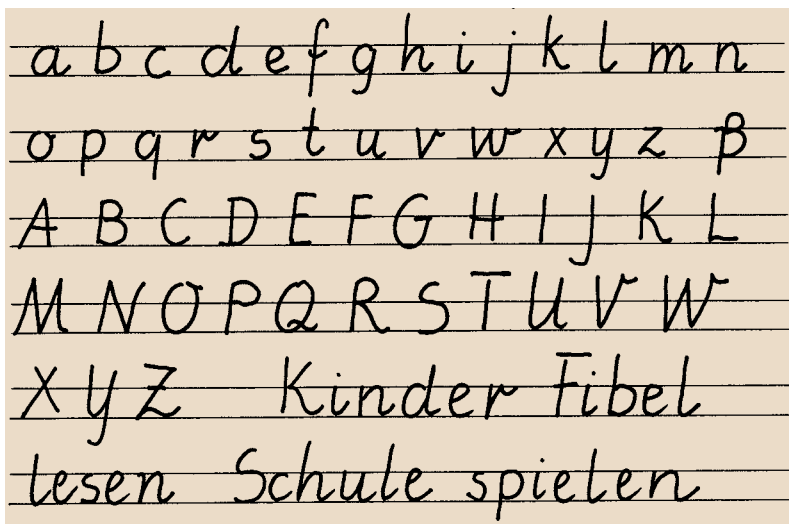 a b c d e f g h i j k l m n
o p q r s t u v w x y z ß
A B C D E F G H I J K L
M N O P Q R S T U V W
X Y Z Kinder Fibel
lesen Schule spielen